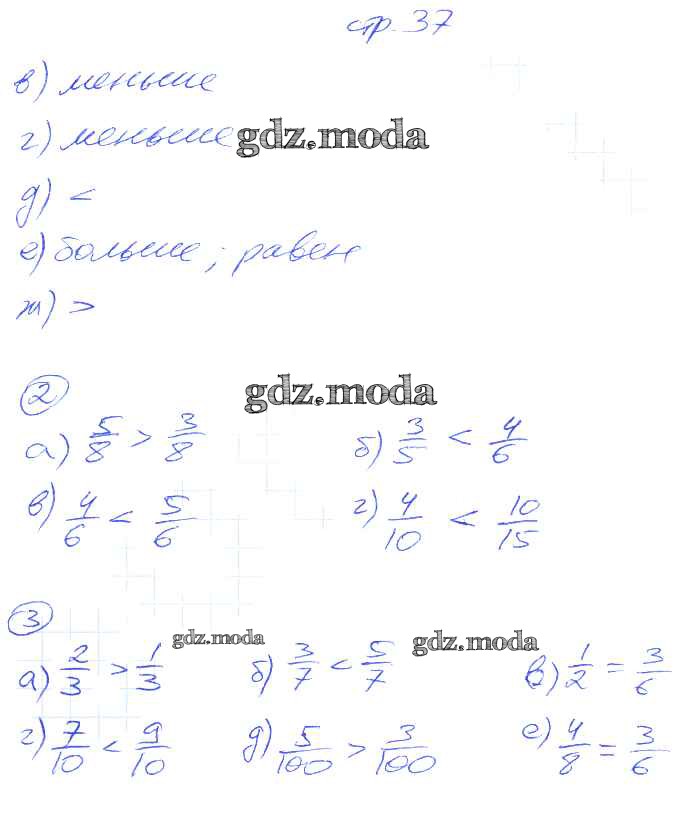 стр. 37
в) меньше
г) меньше gdz.moda
д) <
е) больше; равен
ж) >
② gdz.moda
а) 5/8 > 3/8 б) 3/5 < 4/6
в) 4/6 < 5/6 г) 4/10 < 10/15
③ gdz.moda gdz.moda
а) 2/3 > 1/3 б) 3/7 < 5/7 в) 1/2 = 3/6
г) 7/10 < 9/10 д) 5/100 > 3/100 е) 4/8 = 3/6